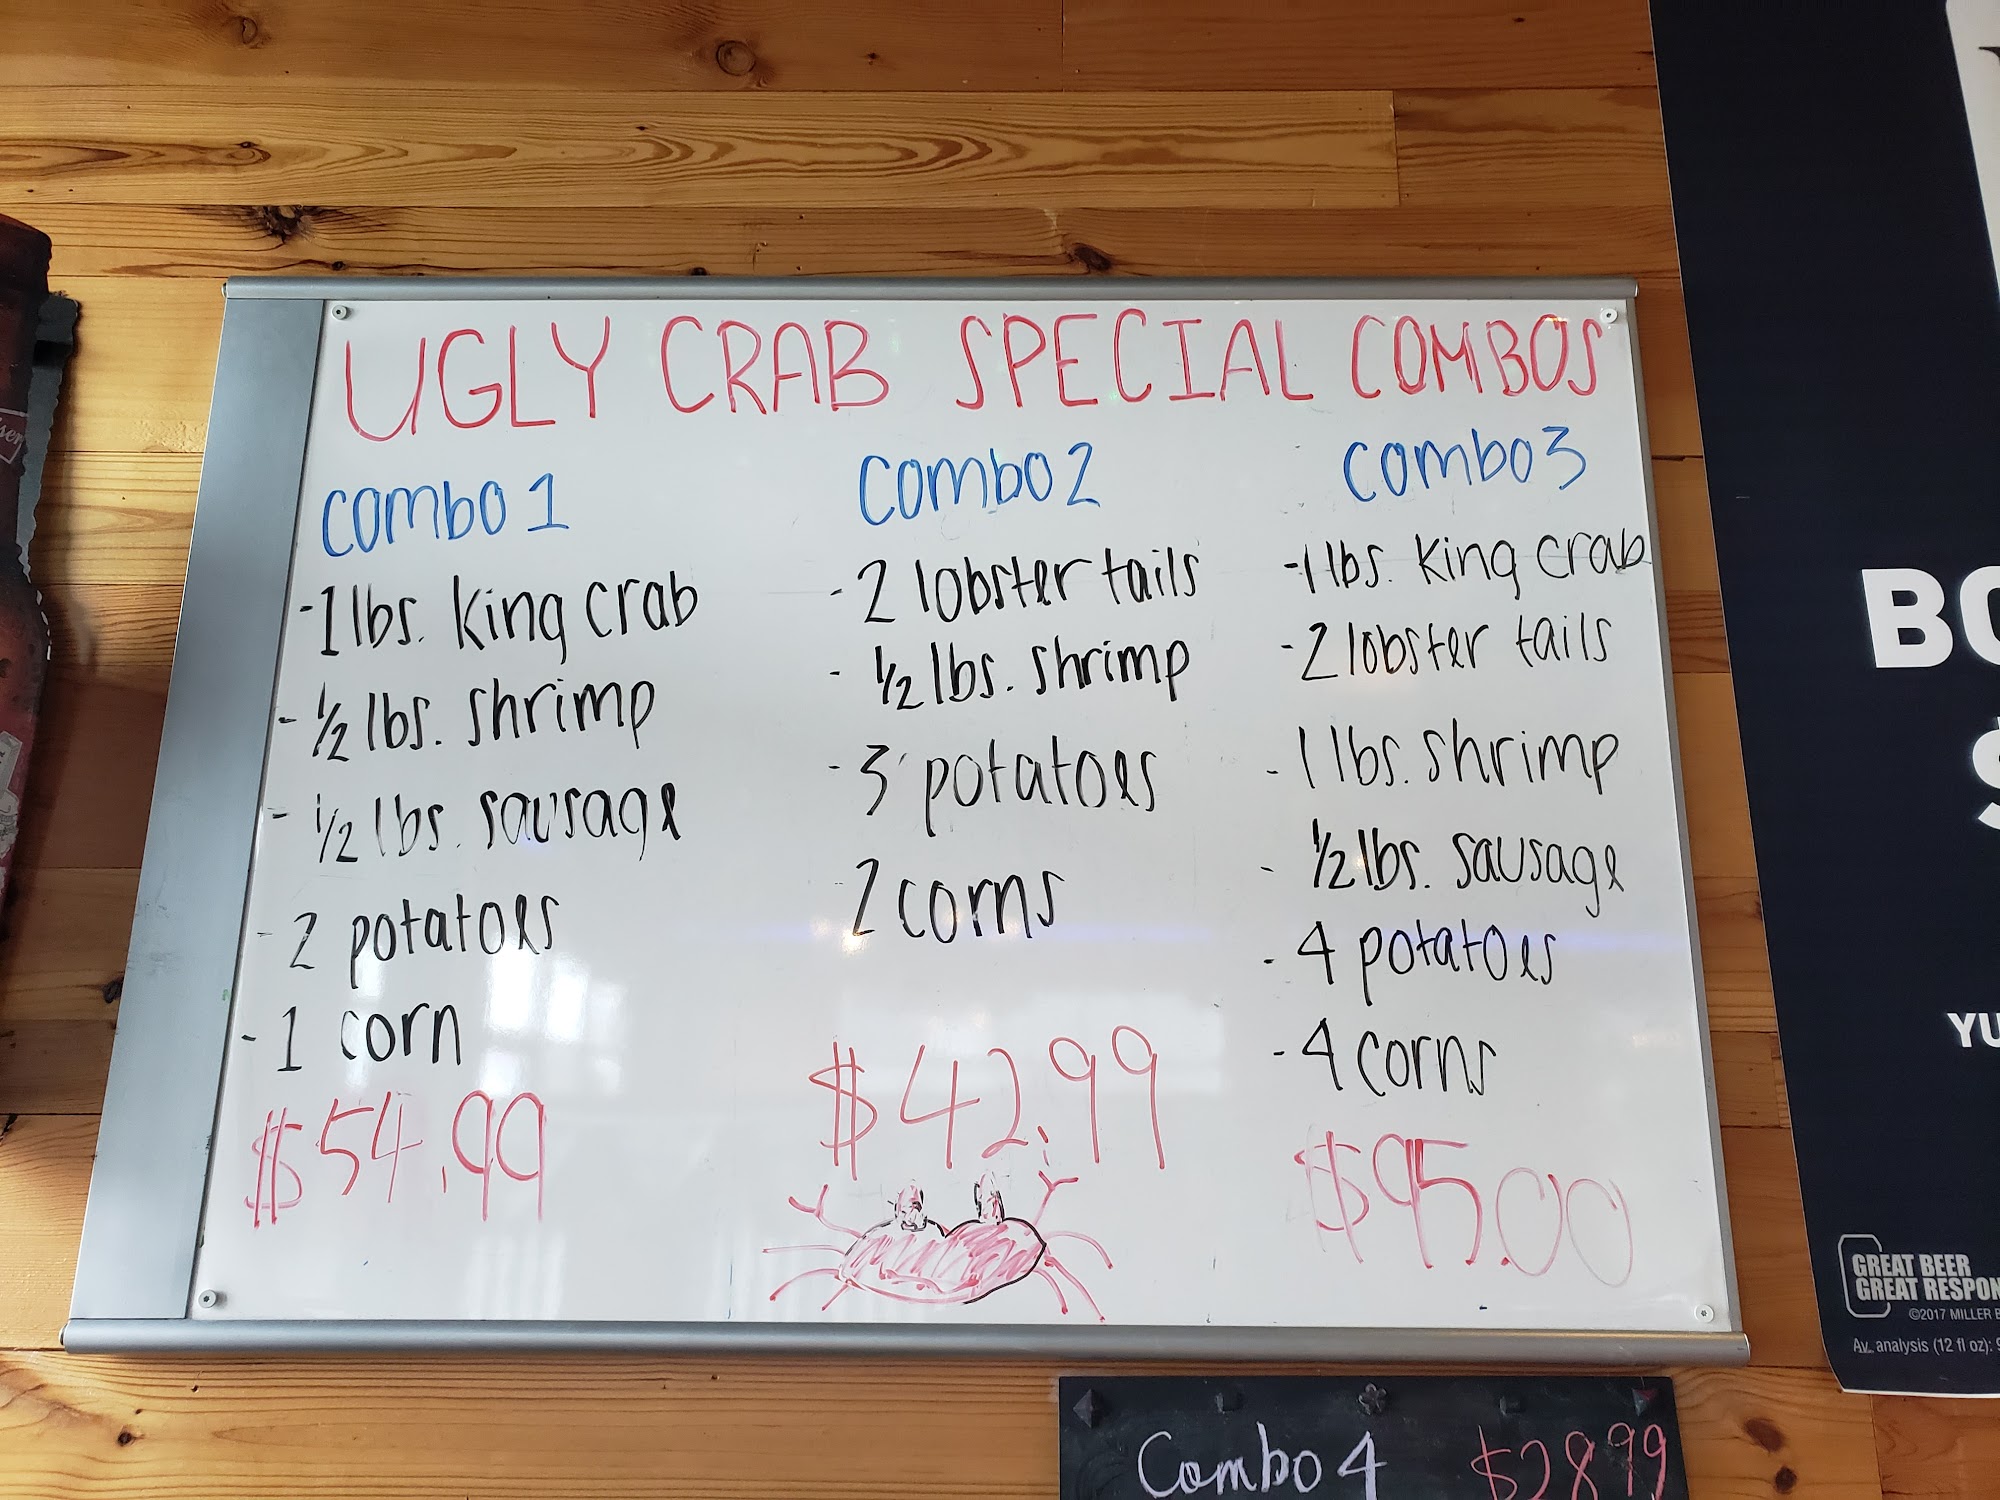 UGLY CRAB SPECIAL COMBOS
combo 1
-1 lbs. king crab
- 1/2 lbs. shrimp
- 1/2 lbs. sausage
- 2 potatoes
- 1 corn
$54.99
combo 2
- 2 lobster tails
- 1/2 lbs. shrimp
- 3 potatoes
- 2 corns
$42.99
combo 3
-1 lbs. king crab
-2 lobster tails
- 1 lbs. shrimp
- 1/2 lbs. sausage
- 4 potatoes
- 4 corns
$95.00
Combo 4 $28.99
BO
$
YU
GREAT BEER
GREAT RESPON
©2017 MILLER B
Av. analysis (12 fl oz): 9
ser